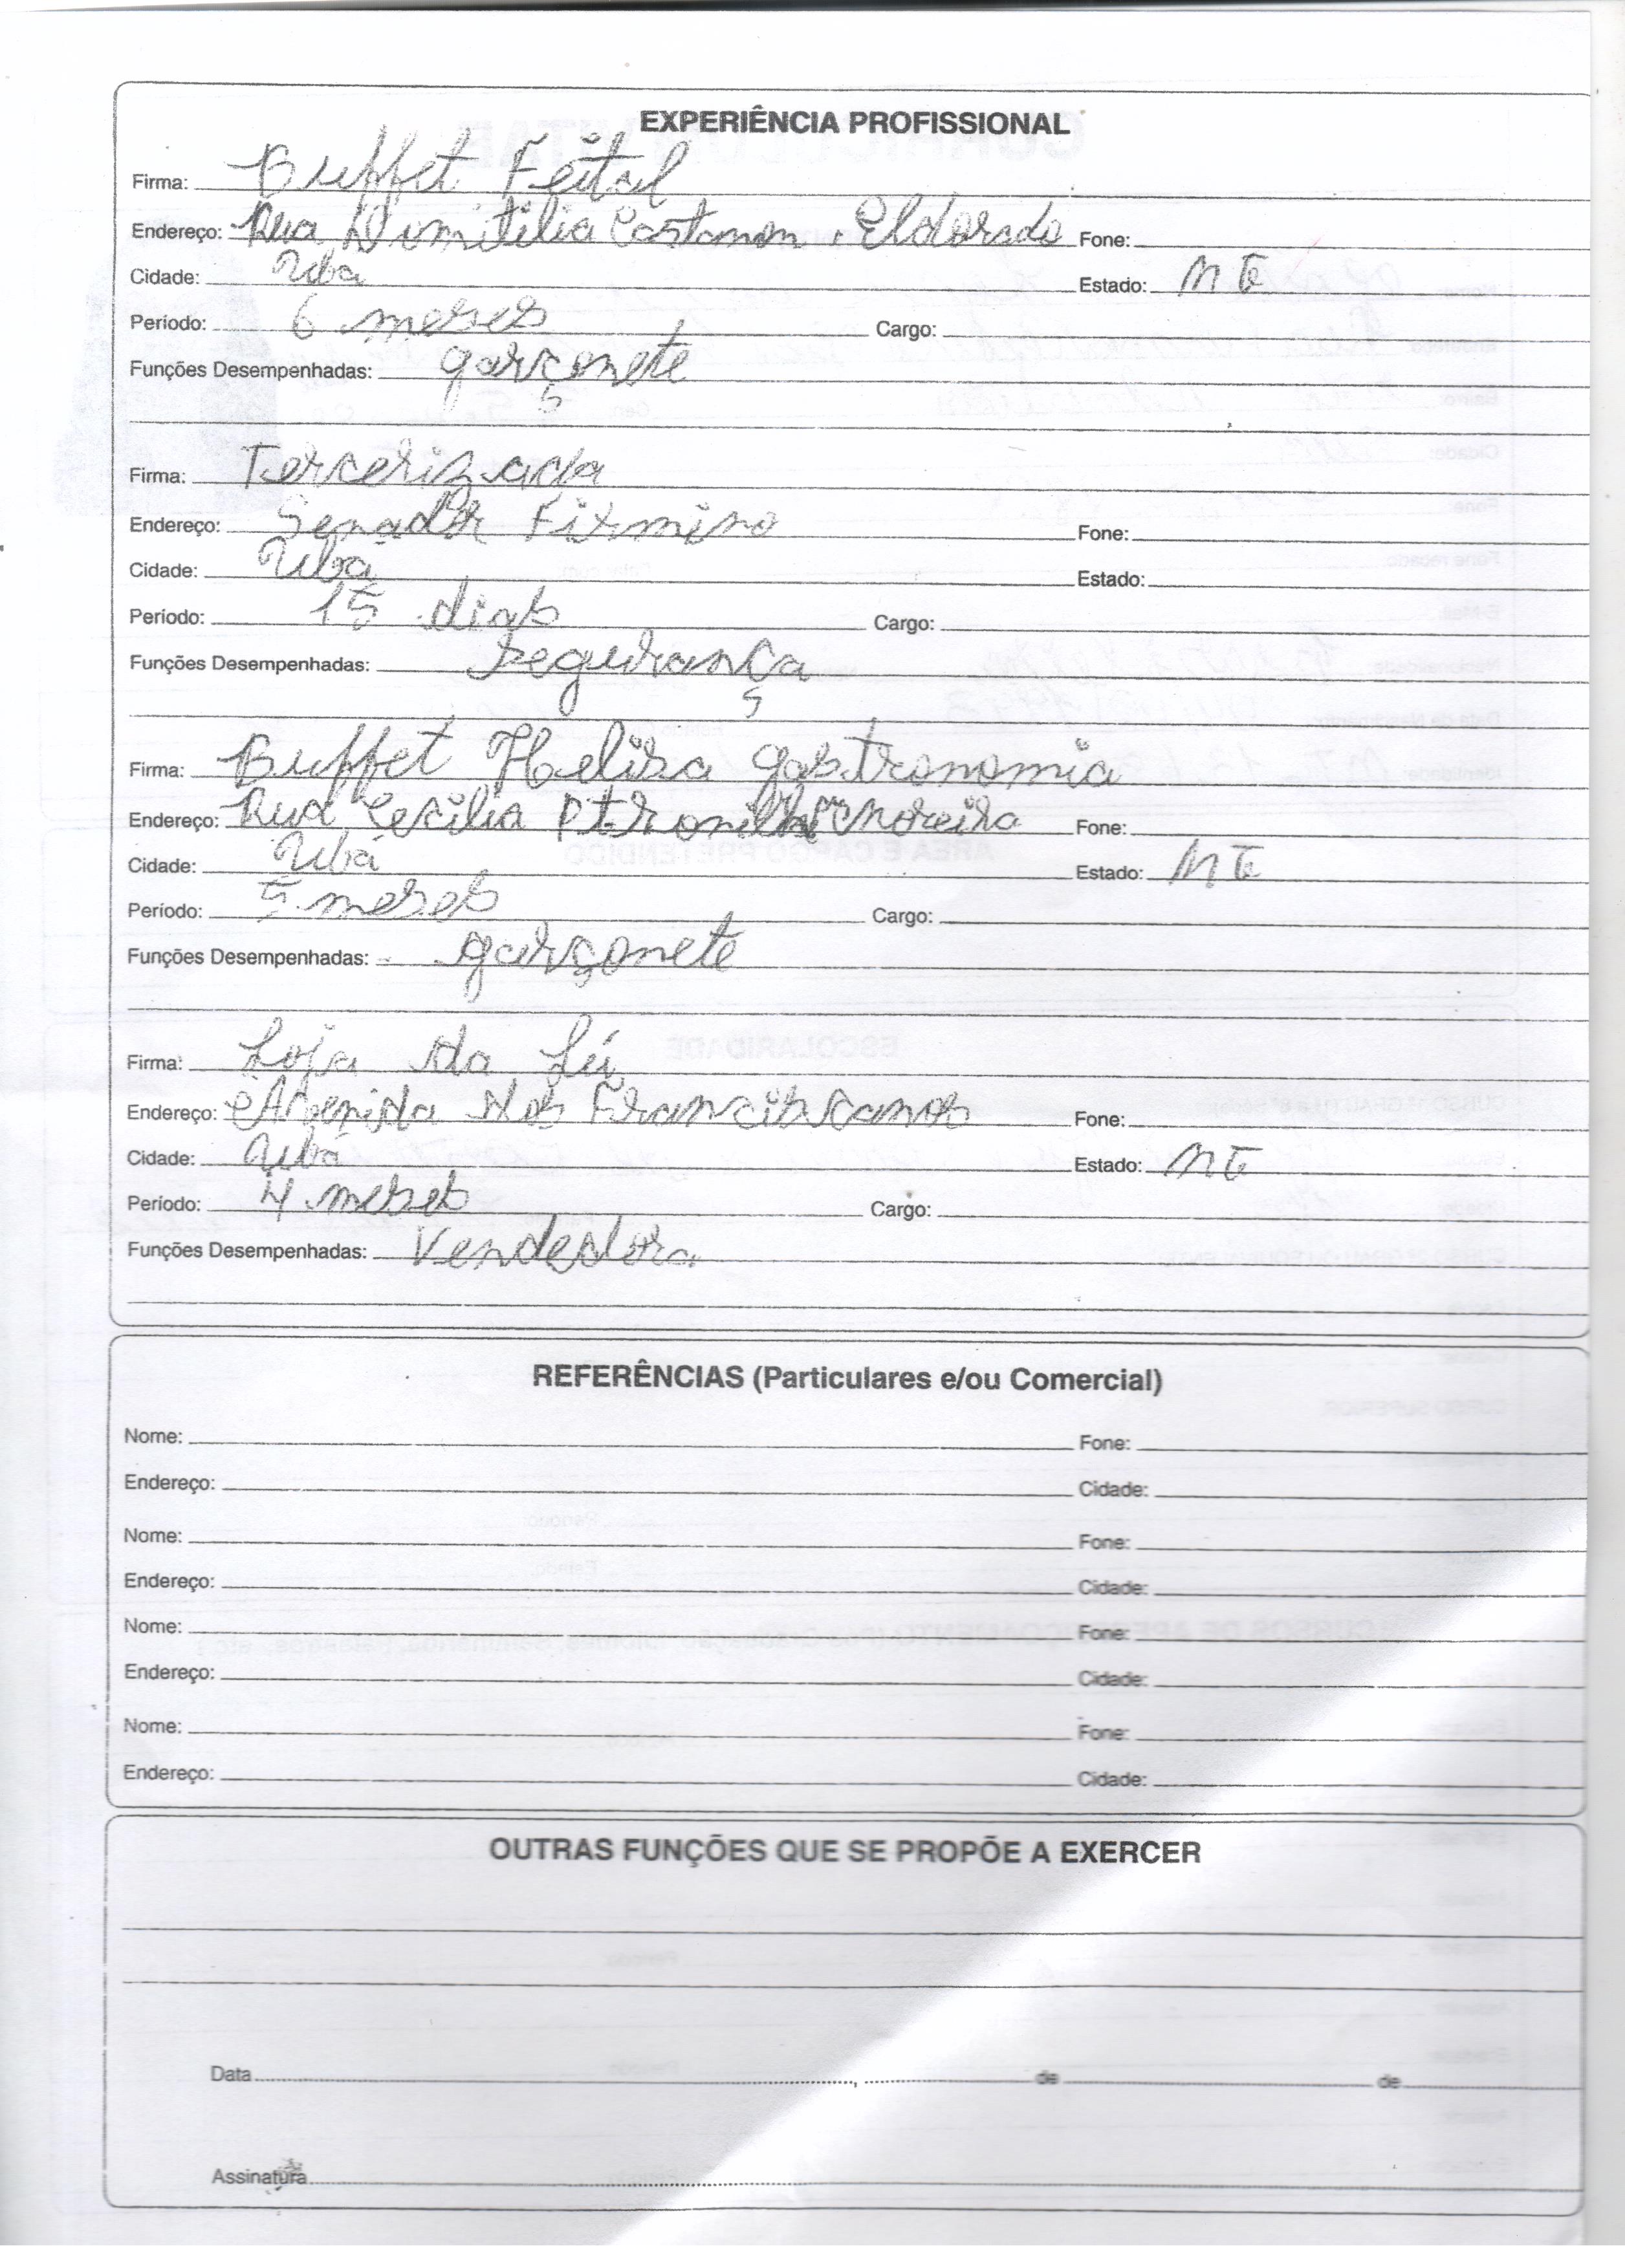 EXPERIÊNCIA PROFISSIONAL
Firma: Buffet Feital
Endereço: Rua Dimitilia Castanon, Eldorado Fone:
Cidade: Ubá Estado: MG
Período: 6 meses Cargo:
Funções Desempenhadas: garçonete
Firma: Tercerizada
Endereço: Senador Firmino Fone:
Cidade: Ubá Estado:
Período: 15 dias Cargo:
Funções Desempenhadas: Segurança
Firma: Buffet Helisa gastronomia
Endereço: Rua Cecilia Moreira Fone:
Cidade: Ubá Estado: MG
Período: 5 meses Cargo:
Funções Desempenhadas: garçonete
Firma: Loja da Lú
Endereço: Avenida dos Franciscanos Fone:
Cidade: Ubá Estado: MG
Período: 4 meses Cargo:
Funções Desempenhadas: Vendedora
REFERÊNCIAS (Particulares e/ou Comercial)
Nome: Fone:
Endereço: Cidade:
Nome: Fone:
Endereço: Cidade:
Nome: Fone:
Endereço: Cidade:
Nome: Fone:
Endereço: Cidade:
OUTRAS FUNÇÕES QUE SE PROPÕE A EXERCER
Data , de de
Assinatura